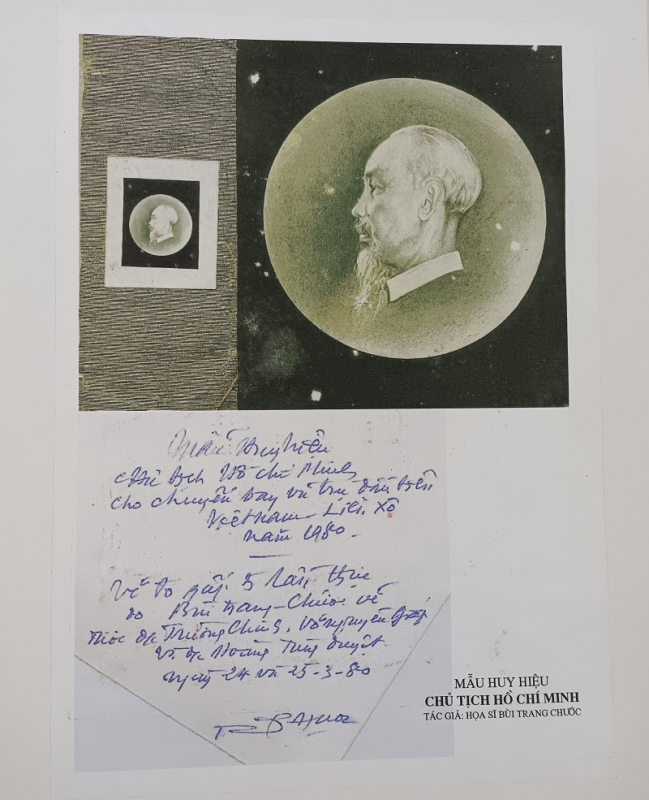 Mẫu Huy hiệu
Chủ tịch Hồ Chí Minh
cho chuyến bay vũ trụ đầu tiên
Việt Nam - Liên Xô
năm 1980.
Vẽ to gấp 5 lần thực
do Bùi Trang-Chước vẽ
Được đc Trường Chinh, Võ Nguyên Giáp
và đc Hoàng Tùng duyệt.
ngày 24 và 25-3-80
MẪU HUY HIỆU
CHỦ TỊCH HỒ CHÍ MINH
TÁC GIẢ: HỌA SĨ BÙI TRANG CHƯỚC